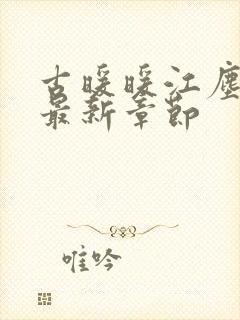 古暖暖江尘
最新章节
唯吟